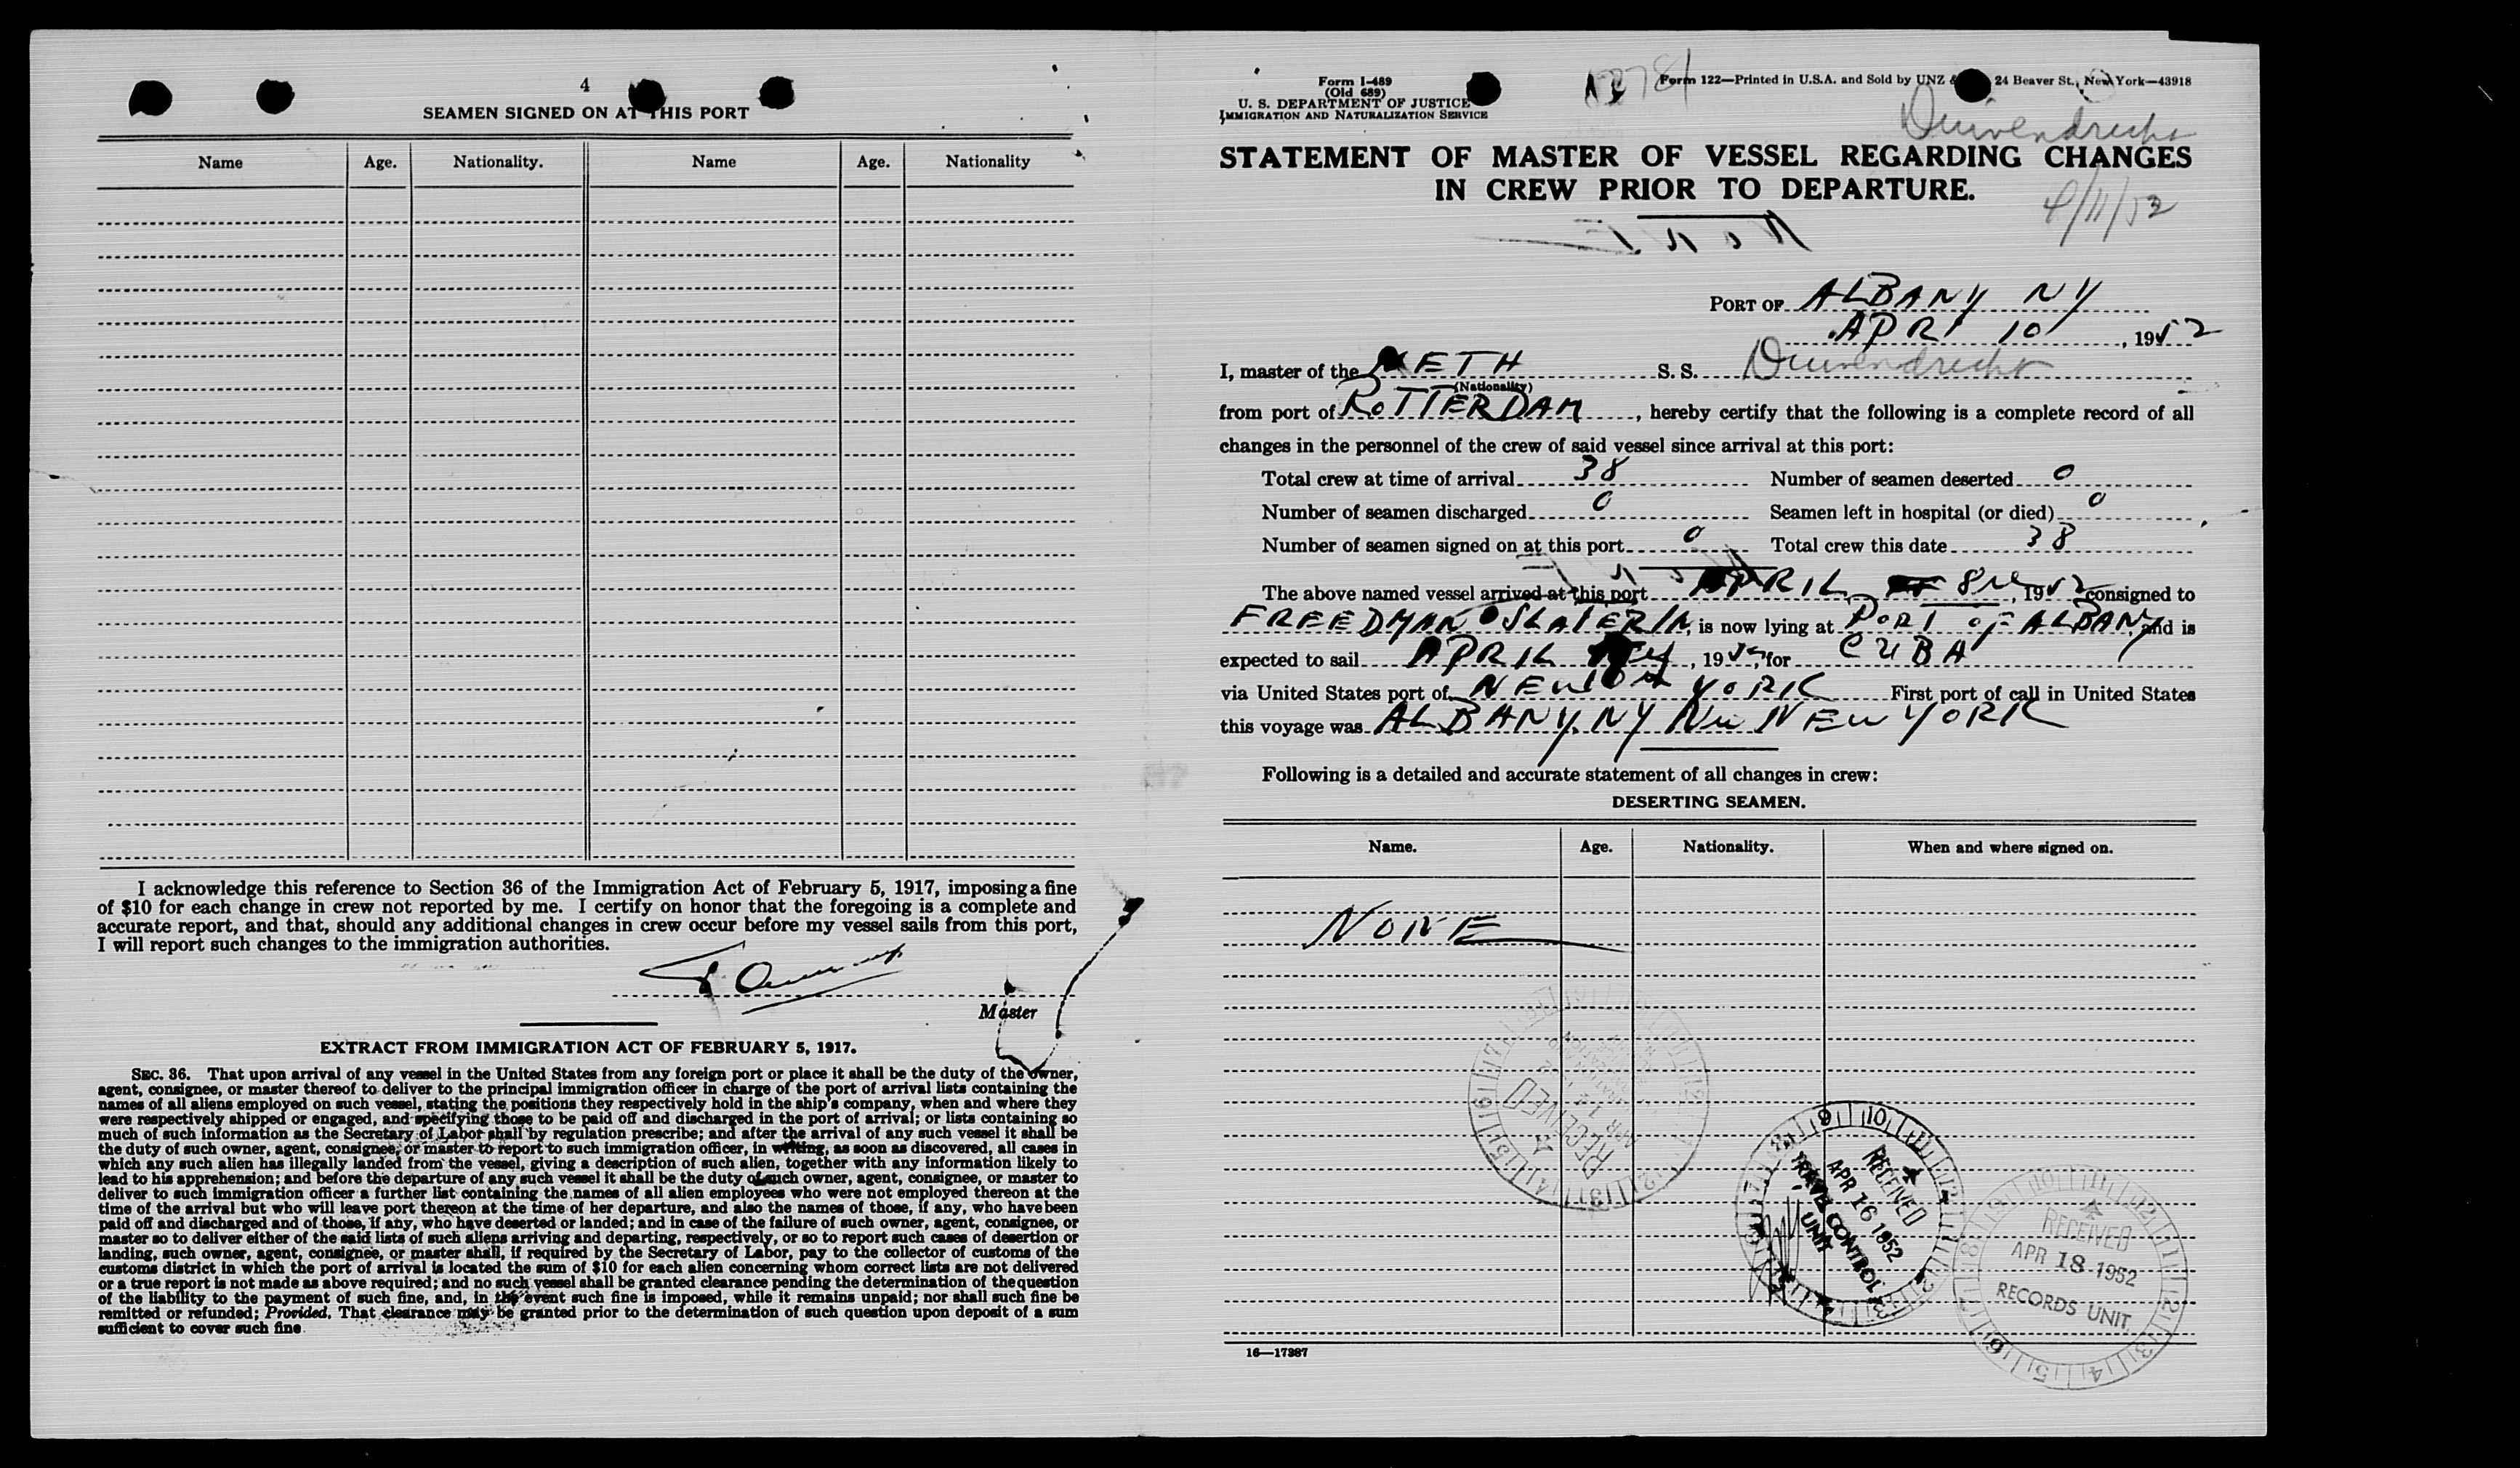 4
SEAMEN SIGNED ON AT THIS PORT
Name Age. Nationality. Name Age. Nationality
I acknowledge this reference to Section 36 of the Immigration Act of February 5, 1917, imposing a fine
of $10 for each change in crew not reported by me. I certify on honor that the foregoing is a complete and
accurate report, and that, should any additional changes in crew occur before my vessel sails from this port,
I will report such changes to the immigration authorities.
Master
EXTRACT FROM IMMIGRATION ACT OF FEBRUARY 5, 1917.
SEC. 36. That upon arrival of any vessel in the United States from any foreign port or place it shall be the duty of the owner,
agent, consignee, or master thereof to deliver to the principal immigration officer in charge of the port of arrival lists containing the
names of all aliens employed on such vessel, stating the positions they respectively hold in the ship's company, when and where they
were respectively shipped or engaged, and specifying those to be paid off and discharged in the port of arrival; or lists containing so
much of such information as the Secretary of Labor shall by regulation prescribe; and after the arrival of any such vessel it shall be
the duty of such owner, agent, consignee, or master to report to such immigration officer, in writing, as soon as discovered, all cases in
which any such alien has illegally landed from the vessel, giving a description of such alien, together with any information likely to
lead to his apprehension; and before the departure of any such vessel it shall be the duty of such owner, agent, consignee, or master to
deliver to such immigration officer a further list containing the names of all alien employees who were not employed thereon at the
time of the arrival but who will leave port thereon at the time of her departure, and also the names of those, if any, who have been
paid off and discharged and of those, if any, who have deserted or landed; and in case of the failure of such owner, agent, consignee, or
master so to deliver either of the said lists of such aliens arriving and departing, respectively, or so to report such cases of desertion or
landing, such owner, agent, consignee, or master shall, if required by the Secretary of Labor, pay to the collector of customs of the
customs district in which the port of arrival is located the sum of $10 for each alien concerning whom correct lists are not delivered
or a true report is not made as above required; and no such vessel shall be granted clearance pending the determination of the question
of the liability to the payment of such fine, and, in the event such fine is imposed, while it remains unpaid; nor shall such fine be
remitted or refunded; Provided, That clearance may be granted prior to the determination of such question upon deposit of a sum
sufficient to cover such fine
Form I-489
(Old 689)
U. S. DEPARTMENT OF JUSTICE
IMMIGRATION AND NATURALIZATION SERVICE
Form 122—Printed in U.S.A. and Sold by UNZ & 24 Beaver St., New York—43918
Duivendrecht
STATEMENT OF MASTER OF VESSEL REGARDING CHANGES
IN CREW PRIOR TO DEPARTURE.
4/11/52
PORT OF ALBANY NY
APRI 10, 1952
I, master of the NETH S. S. Duivendrecht
(Nationality)
from port of ROTTERDAM, hereby certify that the following is a complete record of all
changes in the personnel of the crew of said vessel since arrival at this port:
Total crew at time of arrival 38 Number of seamen deserted 0
Number of seamen discharged 0 Seamen left in hospital (or died) 0
Number of seamen signed on at this port 0 Total crew this date 38
The above named vessel arrived at this port APRIL 8, 1952 consigned to
FREEDMAN SLATER, is now lying at PORT OF ALBANY, and is
expected to sail APRIL, 19 for CUBA
via United States port of NEW YORK First port of call in United States
this voyage was ALBANY, NY NEW YORK
Following is a detailed and accurate statement of all changes in crew:
DESERTING SEAMEN.
Name. Age. Nationality. When and where signed on.
NONE
RECEIVED
APR
RECEIVED
APR 16 1952
TRAVEL CONTROL
UNIT
RECEIVED
APR 18 1952
RECORDS UNIT
16—17387